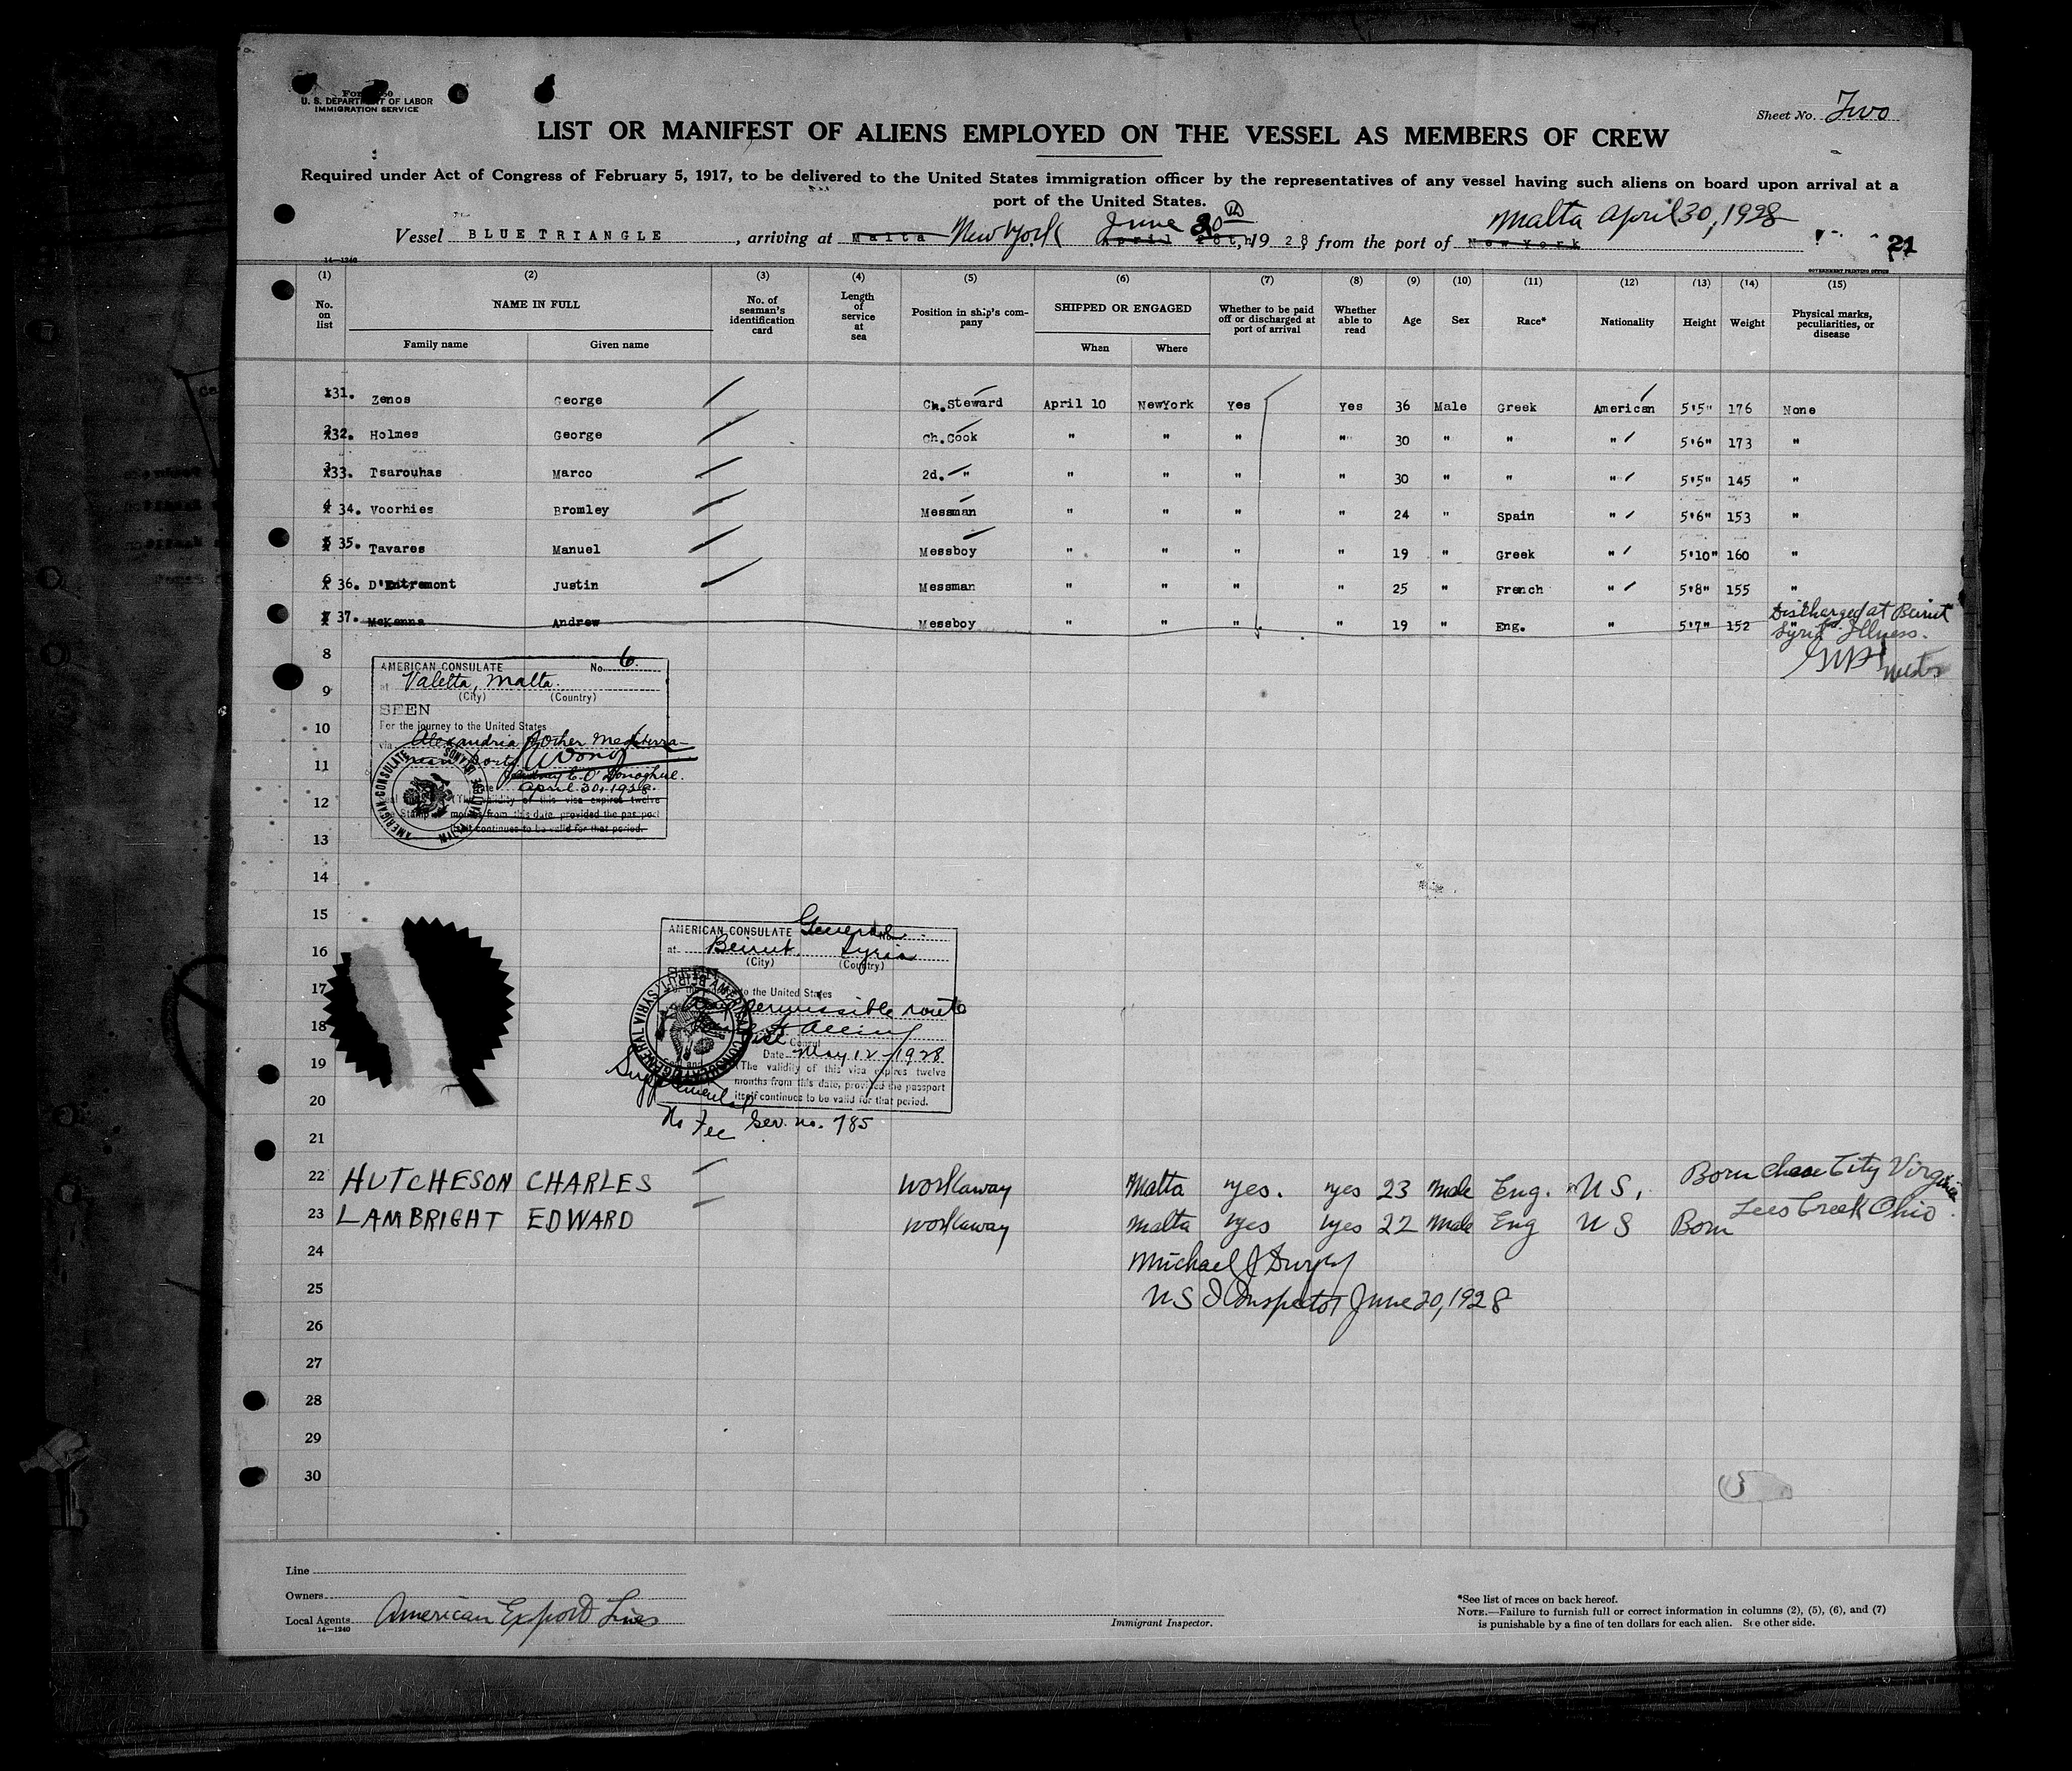 U. S. DEPARTMENT OF LABOR
IMMIGRATION SERVICE
Sheet No. Two
LIST OR MANIFEST OF ALIENS EMPLOYED ON THE VESSEL AS MEMBERS OF CREW
Required under Act of Congress of February 5, 1917, to be delivered to the United States immigration officer by the representatives of any vessel having such aliens on board upon arrival at a
port of the United States.
Vessel BLUE TRIANGLE, arriving at Malta New York April 28th, June 20th 1928, from the port of New York Malta April 30, 1928
21
14—1240
GOVERNMENT PRINTING OFFICE
(1) (2) (3) (4) (5) (6) (7) (8) (9) (10) (11) (12) (13) (14) (15)
No. on list NAME IN FULL No. of seaman's identification card Length of service at sea Position in ship's company SHIPPED OR ENGAGED Whether to be paid off or discharged at port of arrival Whether able to read Age Sex Race* Nationality Height Weight Physical marks, peculiarities, or disease
Family name Given name When Where
31. Zenos George Ch. Steward April 10 NewYork Yes Yes 36 Male Greek American 5'5" 176 None
32. Holmes George Ch. Cook " " " " 30 " " " 5'6" 173 "
33. Tsarouhas Marco 2d. " " " " " 30 " " " 5'5" 145 "
34. Voorhies Bromley Messman " " " " 24 " Spain " 5'6" 153 "
35. Tavares Manuel Messboy " " " " 19 " Greek " 5'10" 160 "
36. D'Entremont Justin Messman " " " " 25 " French " 5'8" 155 "
37. McKenna Andrew Messboy " " " " 19 " Eng. " 5'7" 152 Discharged at Beirut
Syria Illness.
8
AMERICAN CONSULATE No. 6
at Valetta, Malta.
(City) (Country)
9
SEEN
For the journey to the United States
10
via Alexandria & other Mediterra-
nean ports
11
Sidney E. O'Donoghue.
Date April 30, 1928.
12
(The validity of this visa expires twelve
months from this date, provided the passport
itself continues to be valid for that period.
AMERICAN CONSULATE
13
14
15
AMERICAN CONSULATE General No.
at Beirut. Syria
16
(City) (Country)
SEEN
17
For the journey to the United States
permissible route
18
Date May 12 1928
19
(The validity of this visa expires twelve
months from this date, provided the passport
itself continues to be valid for that period.
Supplemental
20
No Fee Ser. no. 785
21
22 HUTCHESON CHARLES workaway Malta yes. yes 23 Male Eng. U S, Born Chase City Virginia
23 LAMBRIGHT EDWARD workaway Malta yes yes 22 Male Eng U S Born Lees Creek Ohio.
24 Michael J
25 U S I Inspector June 20, 1928
26
27
28
29
30
Line
Owners
Local Agents American Export Lines
14—1240
Immigrant Inspector.
*See list of races on back hereof.
NOTE.—Failure to furnish full or correct information in columns (2), (5), (6), and (7)
is punishable by a fine of ten dollars for each alien. See other side.